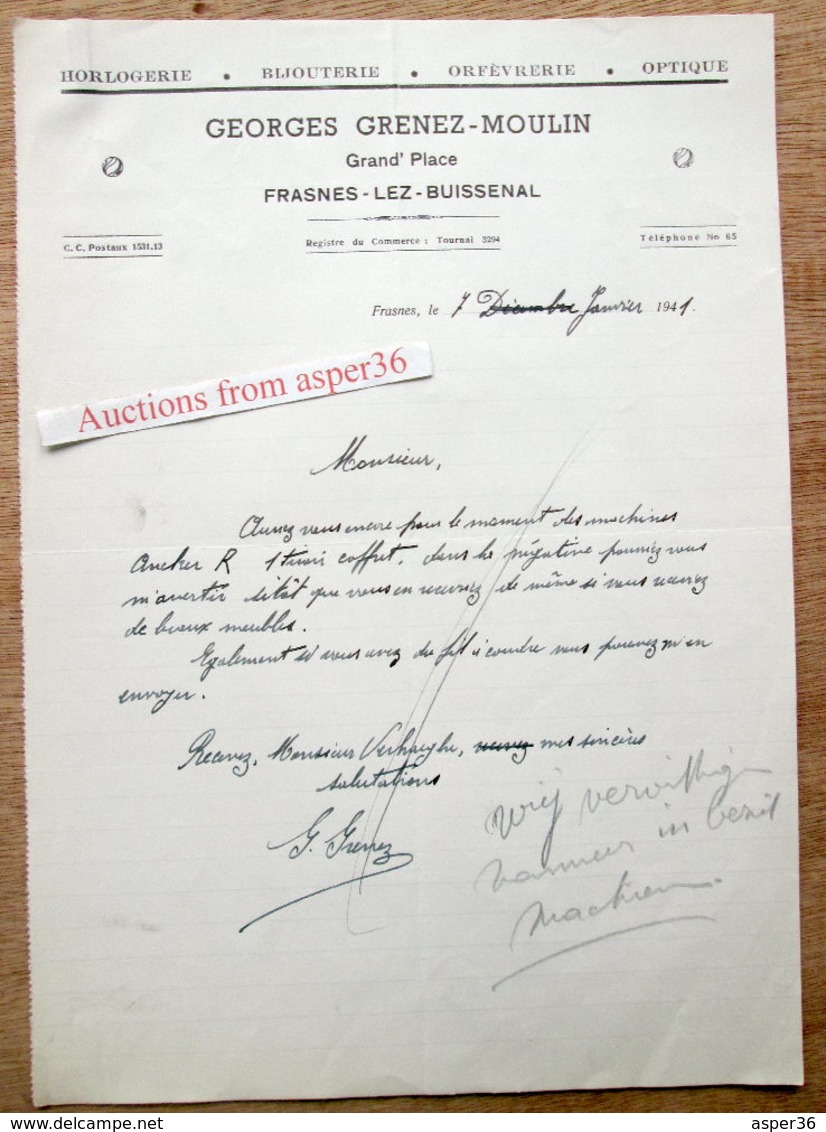 HORLOGERIE • BIJOUTERIE • ORFÈVRERIE • OPTIQUE
GEORGES GRENEZ-MOULIN
Grand' Place
FRASNES-LEZ-BUISSENAL
C. C. Postaux 1531.13
Registre du Commerce : Tournai 3294
Téléphone No 65
Frasnes, le 7 Décembre Janvier 1941.
Auctions from asper36
Monsieur,
Aurez vous encore pour le moment des machines
Ancker R 1 tiroir coffret, dans la négative pourriez vous
m'avertir sitôt que vous en recevrez de même si vous recevrez
de beaux meubles.
Egalement si vous avez du fil à coudre vous pouvez m'en
envoyer.
Recevez, Monsieur Verhaeghe, mes sincères
salutations
G. Grenez
wij verwittigen
wanneer in bezit
machien.
asper36